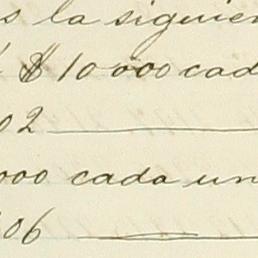 s la siguien
$ 10 000 cad
02
000 cada un
06